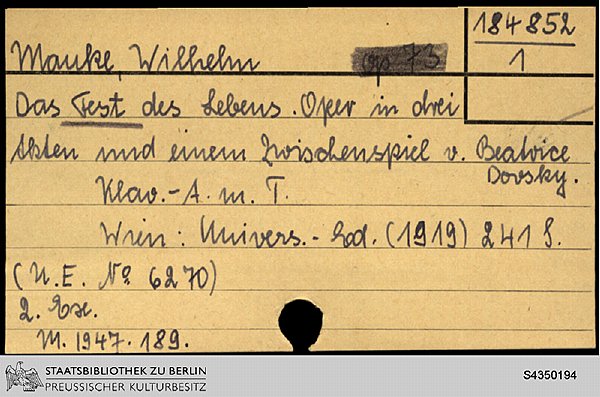 184852
1
Mauke, Wilhelm op 73
Das Fest des Lebens. Oper in drei
Akten und einem Zwischenspiel v. Beatrice
Dovsky.
Klav.-A. m. T.
Wien: Univers.-Ed. (1919) 241 S.
(U.E. No 6270)
2. Ex.
M. 1947. 189.
STAATSBIBLIOTHEK ZU BERLIN
PREUSSISCHER KULTURBESITZ
S4350194